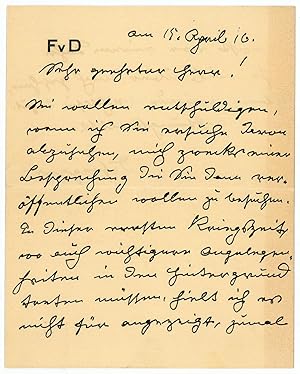 FvD
am 15. April 16.
Sehr geehrter Herr!
Sie wollen entschuldigen,
wenn ich Sie ersuche davon
abzusehen, mich zwecks einer
Besprechung die Sie dann ver-
öffentlichen wollen zu besuchen.
In dieser ernsten Kriegszeit,
wo auch wichtigere Angelegen-
heiten in den Hintergrund
treten müssen, hielt ich es
nicht für angezeigt, zumal